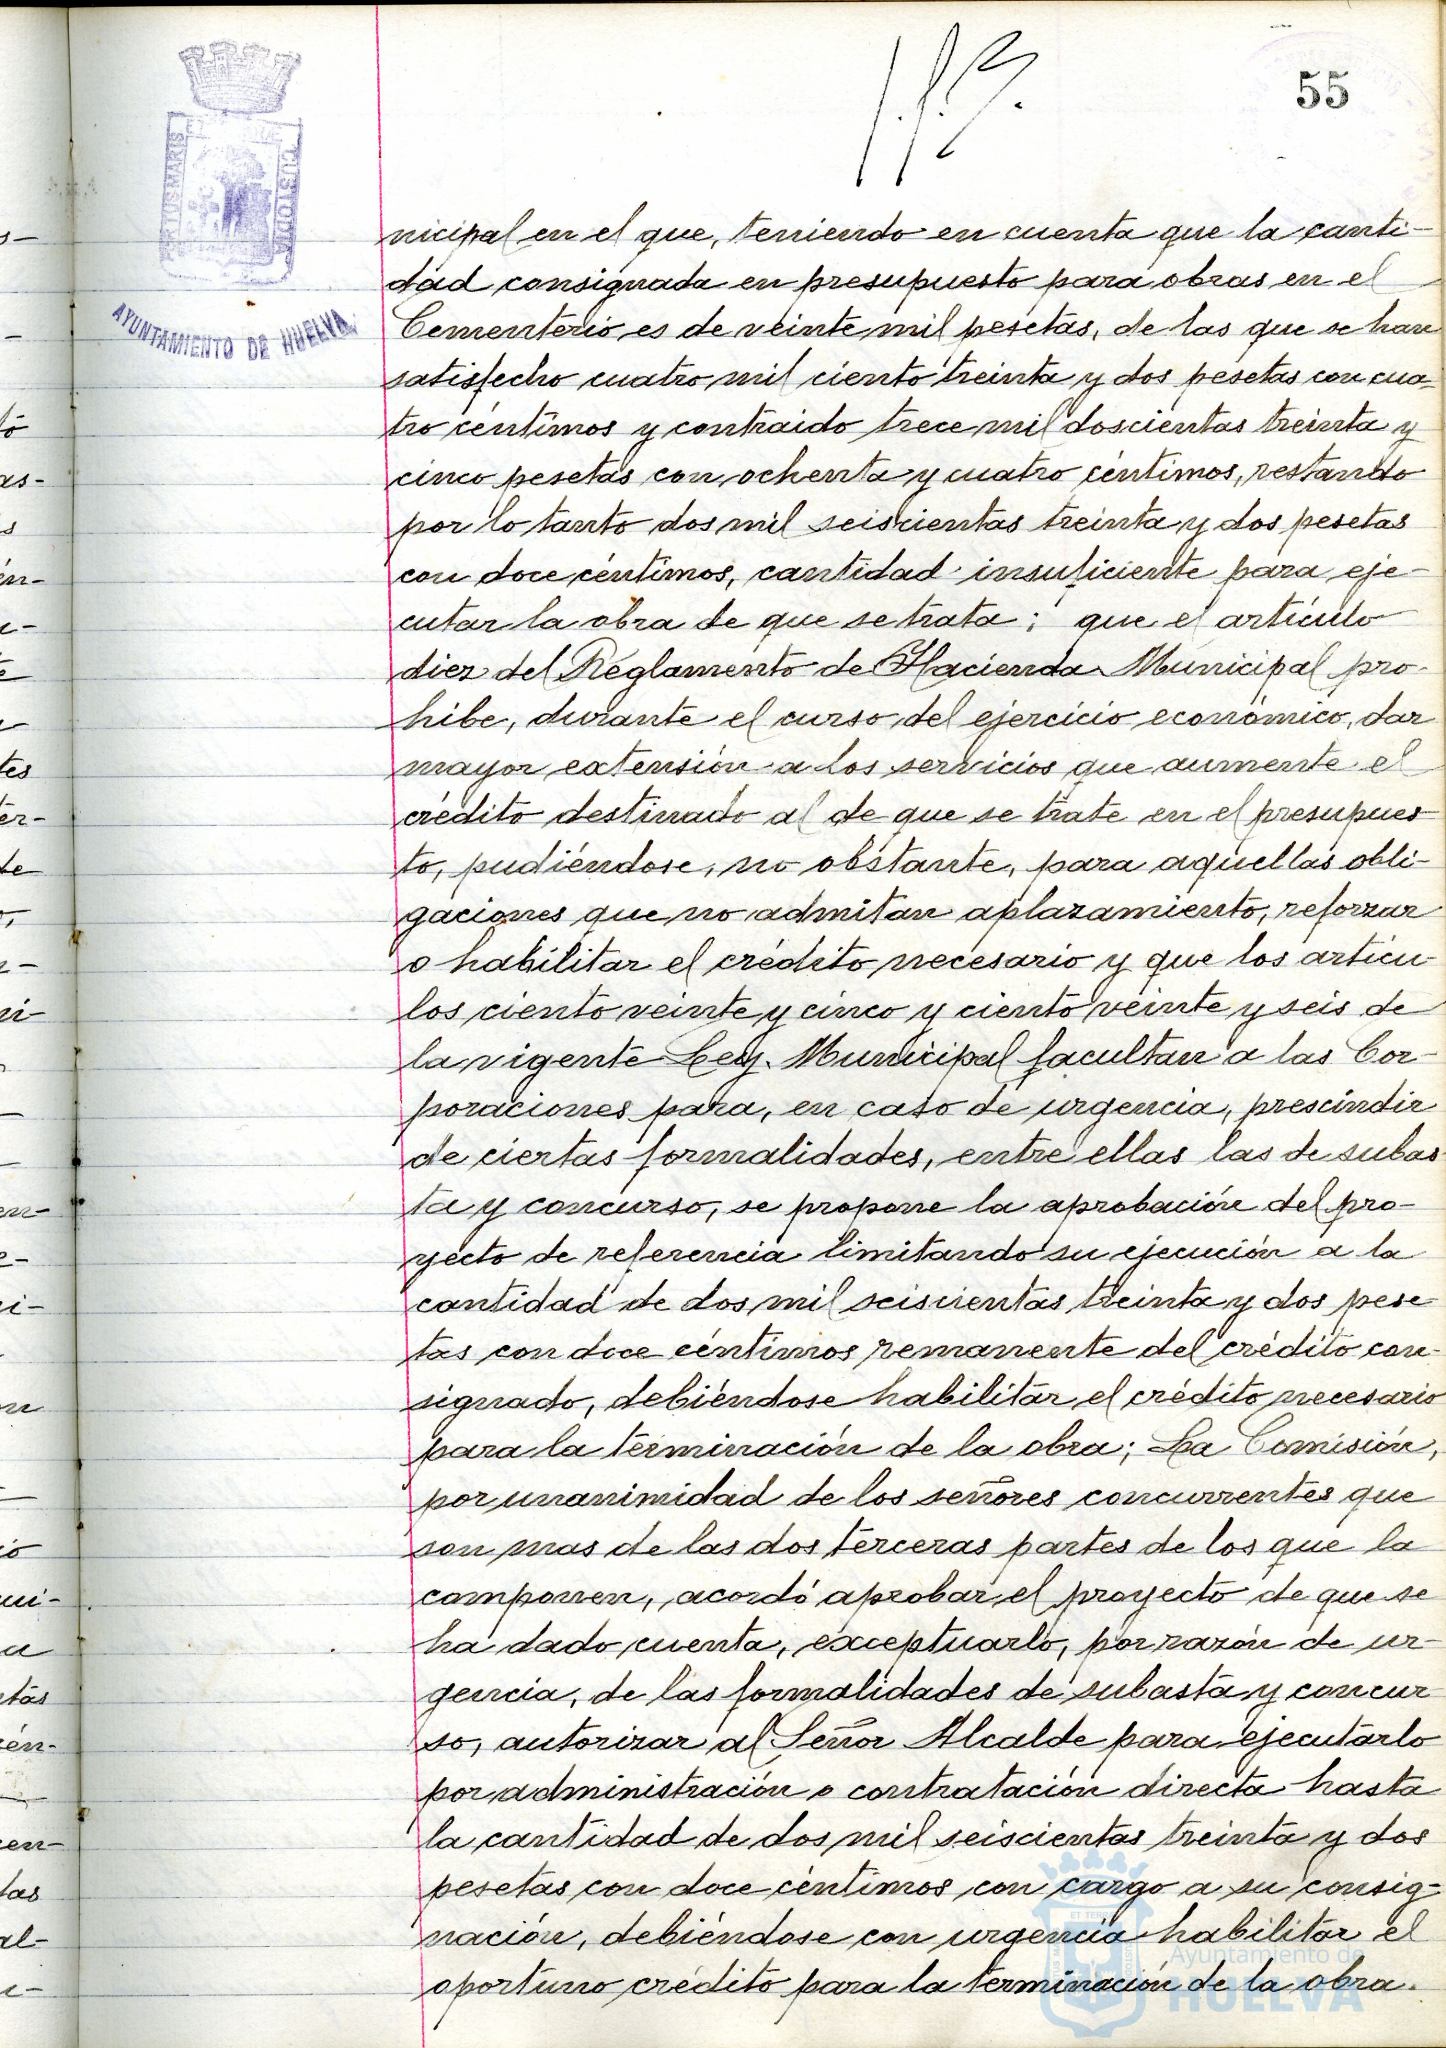 55
PORTUS MARIS
CUSTODIA
AYUNTAMIENTO DE HUELVA
nicipal en el que, teniendo en cuenta que la canti-
dad consignada en presupuesto para obras en el
Cementerio es de veinte mil pesetas, de las que se han
satisfecho cuatro mil ciento treinta y dos pesetas con cua-
tro céntimos y contraido trece mil doscientas treinta y
cinco pesetas con ochenta y cuatro céntimos, restando
por lo tanto dos mil seiscientas treinta y dos pesetas
con doce céntimos, cantidad insuficiente para eje-
cutar la obra de que se trata; que el artículo
diez del Reglamento de Hacienda Municipal pro-
hibe, durante el curso del ejercicio económico, dar
mayor extensión a los servicios que aumente el
crédito destinado al de que se trate en el presupues-
to, pudiéndose, no obstante, para aquellas obli-
gaciones que no admitan aplazamiento, reforzar
o habilitar el crédito necesario y que los artícu-
los ciento veinte y cinco y ciento veinte y seis de
la vigente Ley Municipal facultan a las Cor-
poraciones para, en caso de urgencia, prescindir
de ciertas formalidades, entre ellas las de subas-
ta y concurso, se propone la aprobación del pro-
yecto de referencia limitando su ejecución a la
cantidad de dos mil seiscientas treinta y dos pese-
tas con doce céntimos remanente del crédito con-
signado, debiéndose habilitar el crédito necesario
para la terminación de la obra; La Comisión,
por unanimidad de los señores concurrentes que
son mas de las dos terceras partes de los que la
componen, acordó aprobar el proyecto de que se
ha dado cuenta, exceptuarlo, por razón de ur-
gencia, de las formalidades de subasta y concur-
so, autorizar al Señor Alcalde para ejecutarlo
por administración o contratación directa hasta
la cantidad de dos mil seiscientas treinta y dos
pesetas con doce céntimos con cargo a su consig-
nación, debiéndose con urgencia habilitar el
oportuno crédito para la terminación de la obra.
Ayuntamiento de
HUELVA